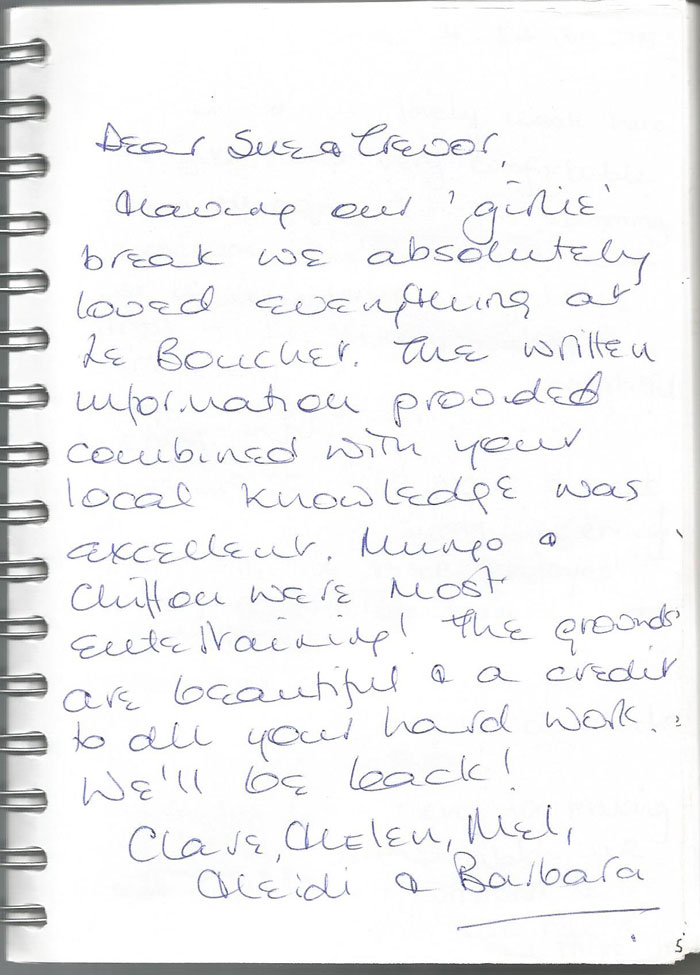 Dear Sue & Trevor,
Having our 'girlie'
break we absolutely
loved everything at
Le Boucher. The written
information provided
combined with your
local knowledge was
excellent. Mungo &
Chiffon were most
entertaining! The grounds
are beautiful & a credit
to all your hard work.
We'll be back!
Clare, Helen, Mel,
Heidi & Barbara
5